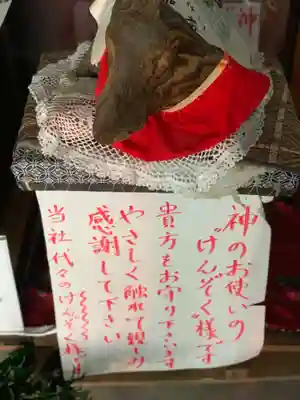 神のお使いの
"けんぞく"様です
貴方をお守り下さいます
やさしく触れて親しめ
感謝して下さい
当社代々のけんぞく様です
神